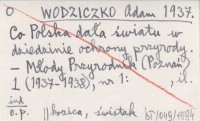 O WODZICZKO Adam 1937.
Co Polska dała światu w
dziedzinie ochrony przyrody.
- Młody Przyrodnik (Poznań)
1 (1937-1938), nr 1: , il.
ind
o.p. kozica, świstak